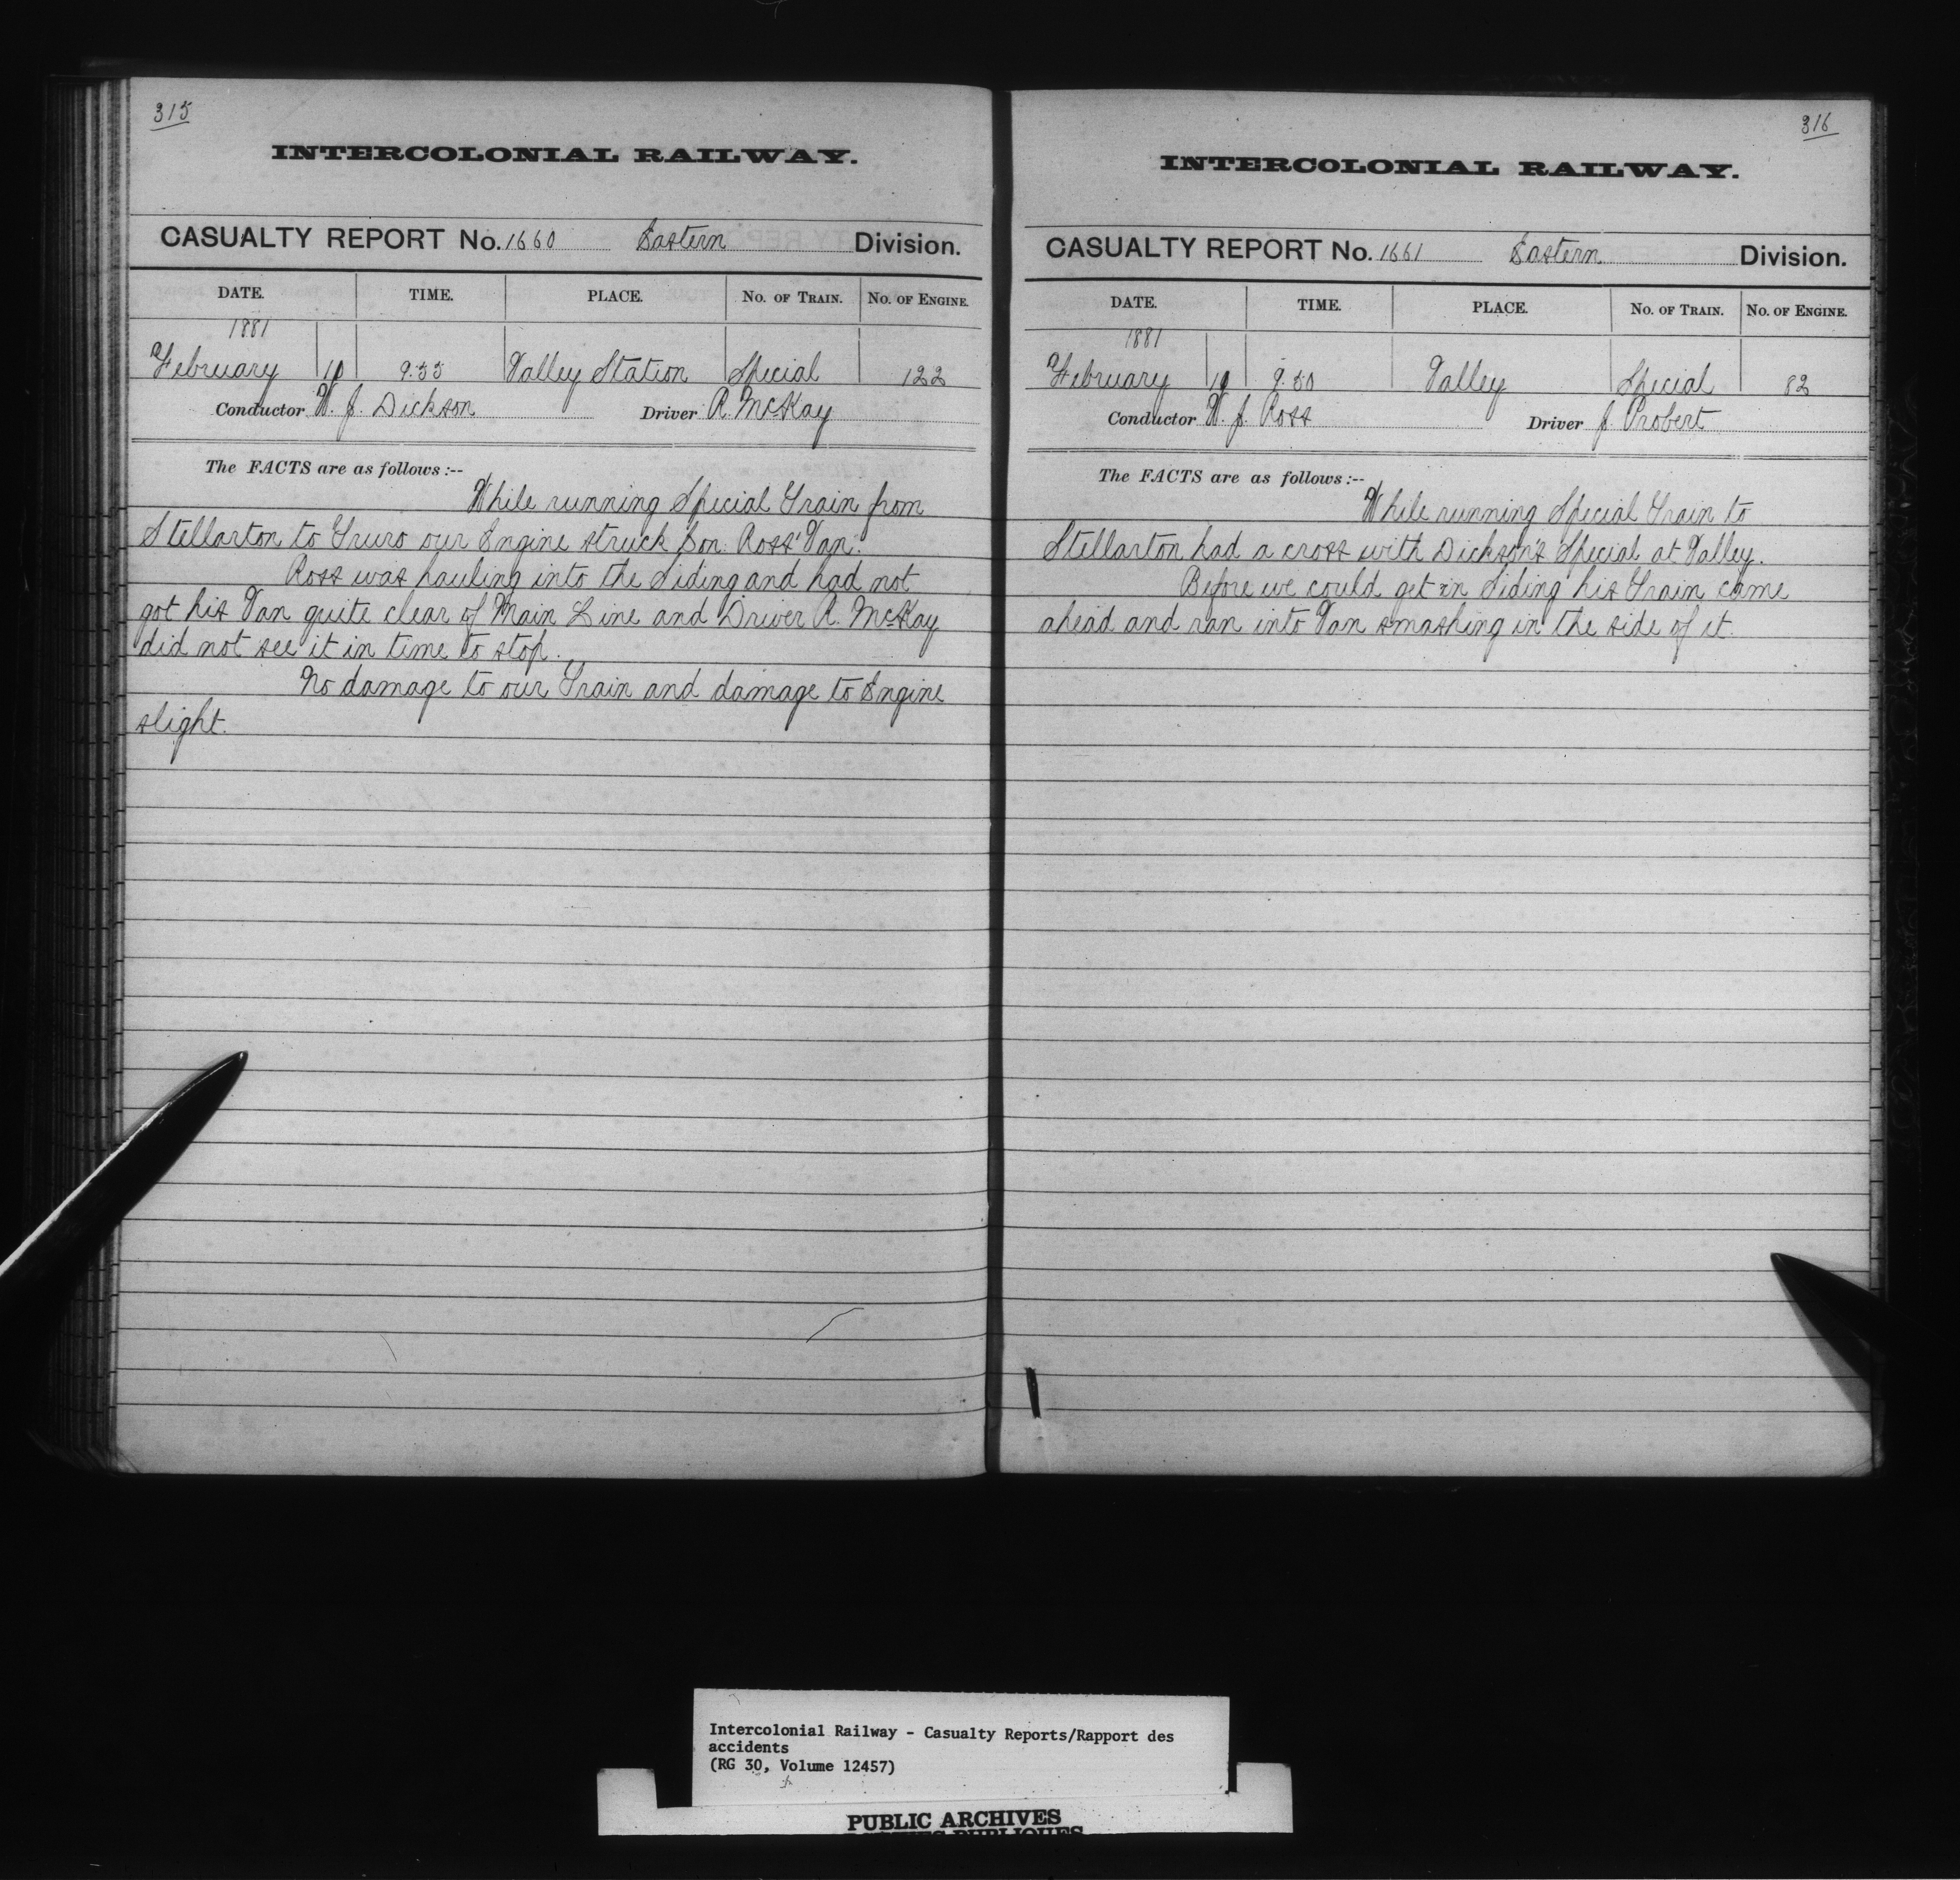 315
INTERCOLONIAL RAILWAY.
CASUALTY REPORT No. 1660 Eastern Division.
DATE. TIME. PLACE. No. of Train. No. of Engine.
1881
February 10 9.55 Valley Station Special 122
Conductor W. J. Dickson Driver R. McKay
The FACTS are as follows:--
While running Special Train from
Stellarton to Truro our Engine struck Con: Ross' Van.
Ross was hauling into the Siding and had not
got his Van quite clear of Main Line and Driver R. McKay
did not see it in time to stop.
No damage to our Train and damage to Engine
slight.
316
INTERCOLONIAL RAILWAY.
CASUALTY REPORT No. 1661 Eastern Division.
DATE. TIME. PLACE. No. of Train. No. of Engine.
1881
February 10 9.50 Valley Special 82
Conductor W. J. Ross Driver J. Probert
The FACTS are as follows:--
While running Special Train to
Stellarton had a cross with Dickson's Special at Valley.
Before we could get in Siding his Train came
ahead and ran into Van smashing in the side of it.
Intercolonial Railway - Casualty Reports/Rapport des
accidents
(RG 30, Volume 12457)
PUBLIC ARCHIVES